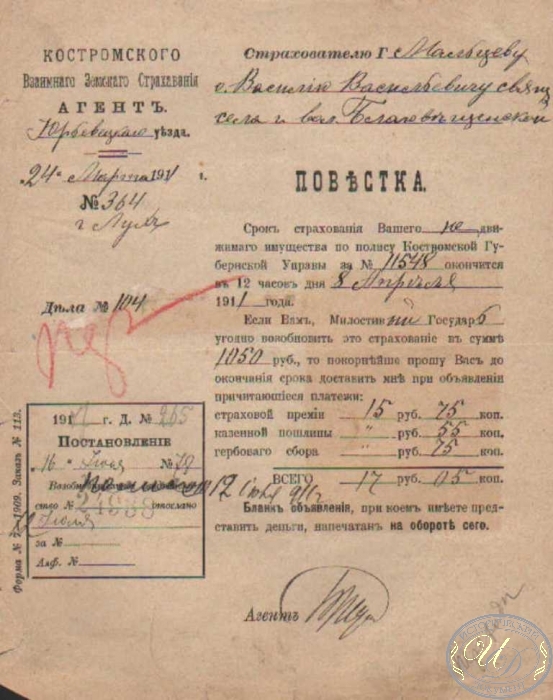 КОСТРОМСКОГО
Взаимнаго Земскаго Страхованія
АГЕНТЪ.
Юрьевецкаго уѣзда.
24го Марта 1911 г.
№ 364
г Лухъ
Дѣла № 104
Страхователю Г Мальцеву
о. Василію Васильевичу свящ
села и вол. Благовѣщенской
ПОВѢСТКА.
Срокъ страхованія Вашего не движимаго
имущества по полису Костромской Гу-
бернской Управы за № 11548 окончится
въ 12 часовъ дня 8 Апрѣля
1911 года.
Если Вамъ, Милостивый Государь
угодно возобновить это страхованіе въ суммѣ
1050 руб., то покорнѣйше прошу Васъ до
окончанія срока доставить мнѣ при объявленіи
причитающіеся платежи:
страховой преміи 15 руб. 75 коп.
казенной пошлины " руб. 55 коп.
гербоваго сбора " руб. 75 коп.
ВСЕГО 17 руб. 05 коп.
Бланкъ объявленія, при коемъ имѣете пред-
ставить деньги, напечатанъ на оборотѣ сего.
Агентъ
1911 г. Д. № 265
ПОСТАНОВЛЕНІЕ
16 № 78
ство № 24638 отослано
Іюля
за №
Алф. №
Форма № 1909. Заказъ № 113.
ИСТОРИЧЕСКИЙ
ДОКУМЕНТ
И Д